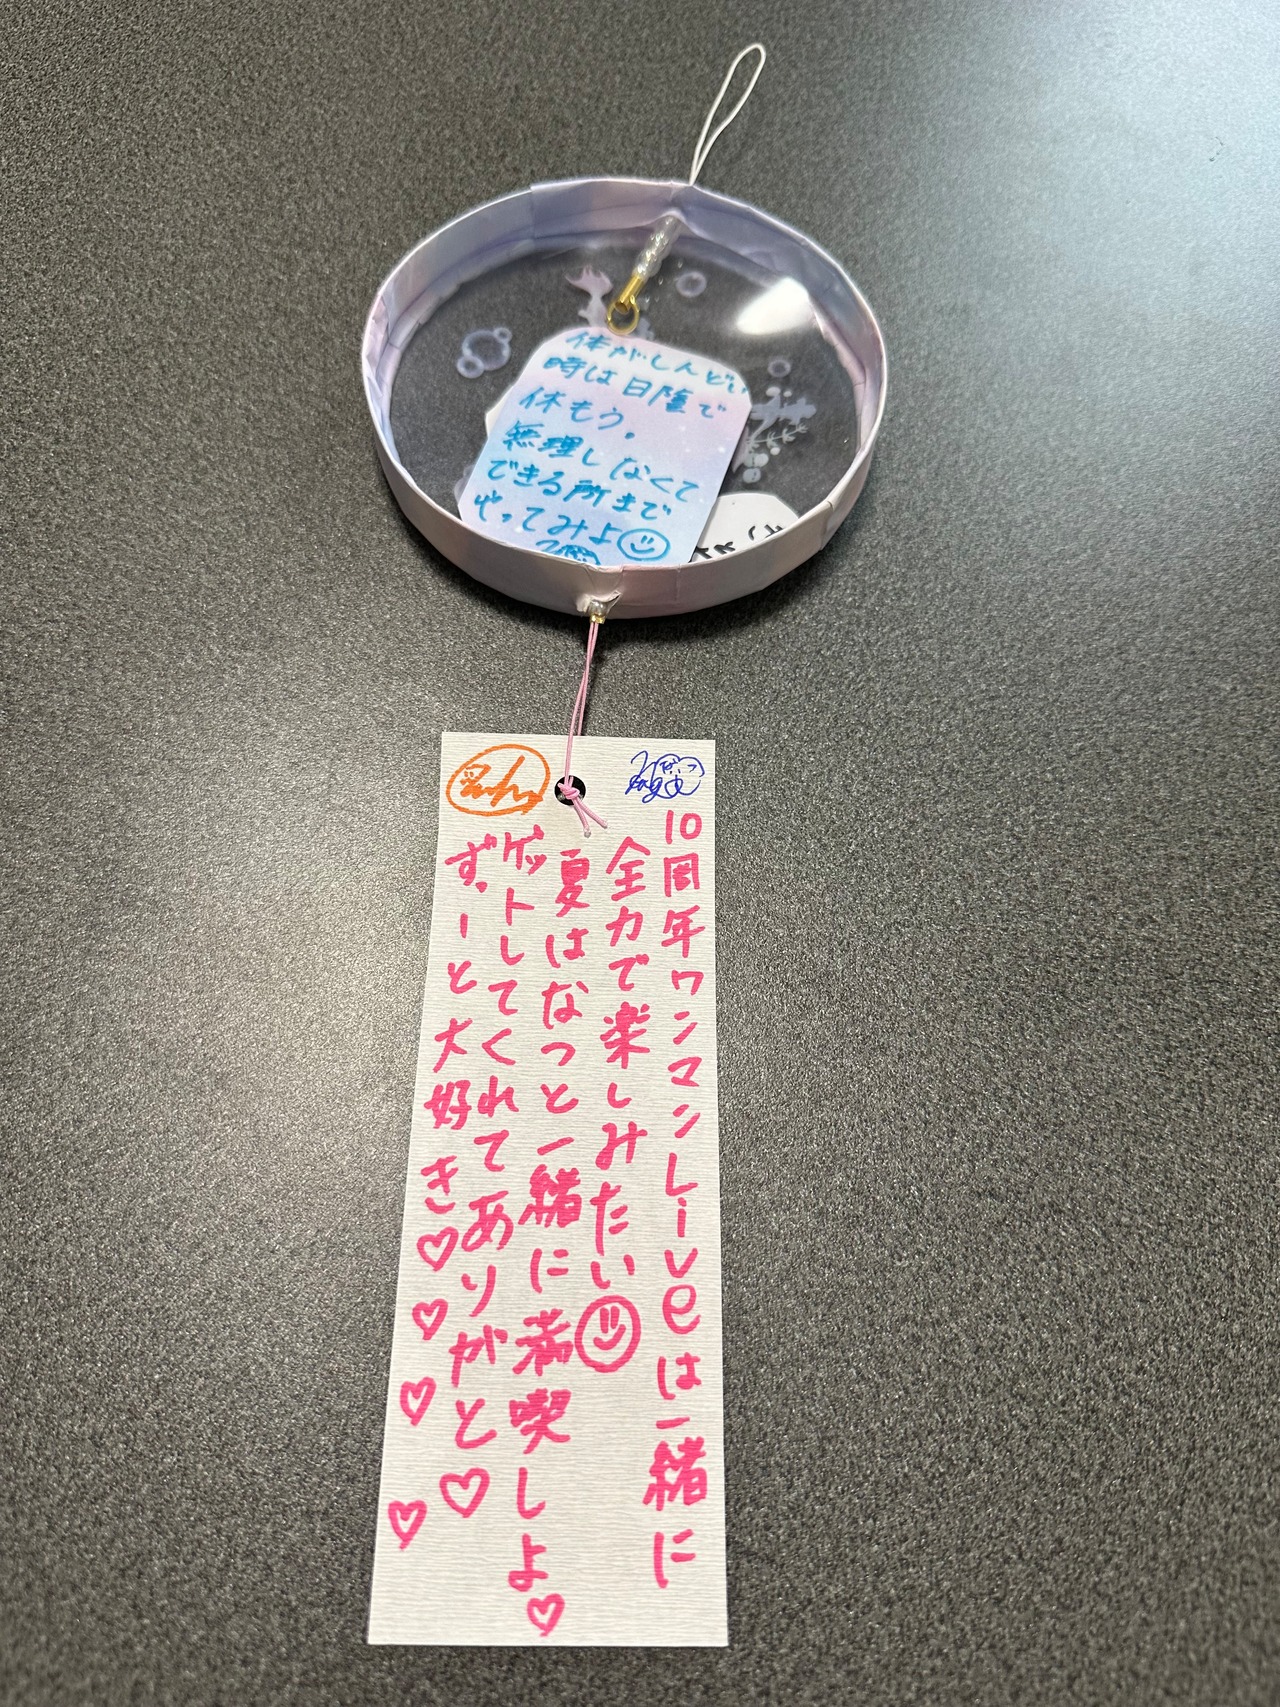 体がしんどい
時は日陰で
休もう。
無理しなくて
できる所まで
やってみよ
10周年ワンマンLiveは一緒に
全力で楽しみたい
夏はなつと一緒に満喫しよ♡
ゲットしてくれてありがと♡
ずーっと大好き♡♡♡♡